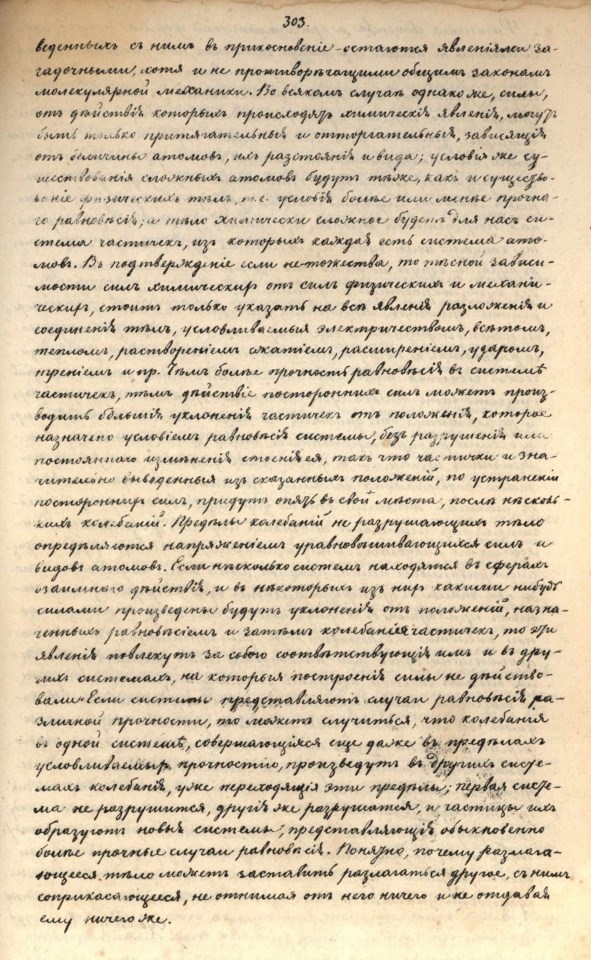 303.
веденныхъ съ нимъ въ прикосновеніе - остаются явленіями за-
гадочными, хотя и не противорѣчащими общимъ законамъ
молекулярной механики. Во всякомъ случаѣ однако же, силы,
отъ дѣйствій которыхъ происходятъ химическія явленія, могутъ
быть только притягательныя и отторгательныя, зависящія
отъ величины атомовъ, ихъ разстоянія и вида; условія же су-
ществованія сложныхъ атомовъ будутъ тѣже, какъ и существо-
ванія физическихъ тѣлъ, т.е. условія болѣе или менѣе прочна-
го равновѣсія; а тѣло химически сложное будетъ для насъ си-
стема частичекъ, изъ которыхъ каждая есть система ато-
мовъ. Въ подтвержденіе если не тожества, то тѣсной зависи-
мости силъ химическихъ отъ силъ физическихъ и механи-
ческихъ, стоитъ только указать на всѣ явленія разложенія и
соединенія тѣлъ, условливаемыя электричествомъ, свѣтомъ,
тепломъ, раствореніемъ сжатіемъ, расширеніемъ, ударомъ,
треніемъ и пр. Чѣмъ болѣе прочность равновѣсія въ системѣ
частичекъ, тѣмъ дѣйствіе постороннихъ силъ можетъ произ-
водить большія уклоненія частичекъ отъ положенія, которое
назначено условіемъ равновѣсія системы, безъ разрушенія или
постояннаго измѣненія строенія ея, такъ что частички и зна-
чительно выведенныя изъ сказанныхъ положеній, по устраненіи
постороннихъ силъ, придутъ опять въ свои мѣста, послѣ нѣсколь-
кихъ колебаній. Предѣлы колебаній не разрушающихъ тѣло
опредѣляются напряженіемъ уравновѣшивающихся силъ и
видовъ атомовъ. Если нѣсколько системъ находятся въ сферахъ
взаимнаго дѣйствія, и въ нѣкоторыхъ изъ нихъ какими нибудь
силами произведены будутъ уклоненія отъ положеній, назна-
ченныхъ равновѣсіемъ и затѣмъ колебанія частичекъ, то эти
явленія повлекутъ за собою соотвѣтствующія имъ и въ дру-
гихъ системахъ, на которыя построенія силы не дѣйство-
вали. Если системы представляютъ случаи равновѣсія ра-
зличной прочности, то можетъ случиться, что колебанія
въ одной системѣ, совершающіяся еще даже въ предѣлахъ
условливаемыхъ прочностію, произведутъ въ другихъ систе-
махъ колебанія, уже переходящія эти предѣлы; первая систе-
ма не разрушится, другія же разрушатся, и частицы ихъ
образуютъ новыя системы, представляющія обыкновенно
болѣе прочные случаи равновѣсія. Понятно, почему разлага-
ющееся тѣло можетъ заставить разлагаться другое, съ нимъ
соприкасающееся, не отнимая отъ него ничего и не отдавая
ему ничего же.